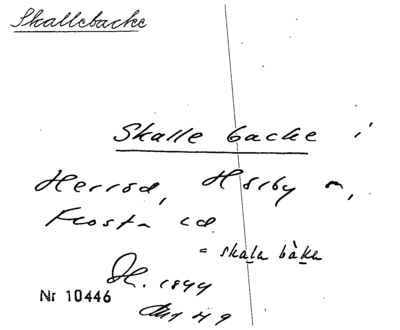 Skallebacke
Skalle backe i
Herrod, Hörby n,
Frosta cd
= skala båka
H. 1944
Nr 10446
49